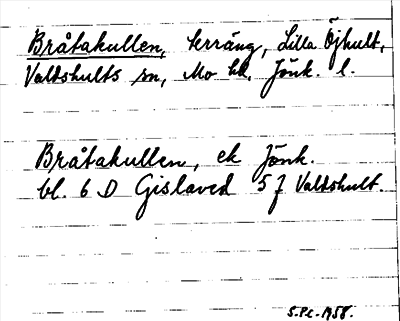 Bråtakullen, terräng, Lilla Öjhult,
Valdshults sn, Mo hd, Jönk. l.
Bråtakullen, ek Jönk.
bl. 6 D Gislaved 5 f Valdshult.
1958.